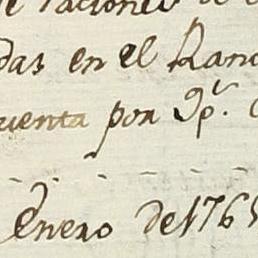 e raciones de
das en el Ran
uenta por Dⁿ.
Enero de 1765